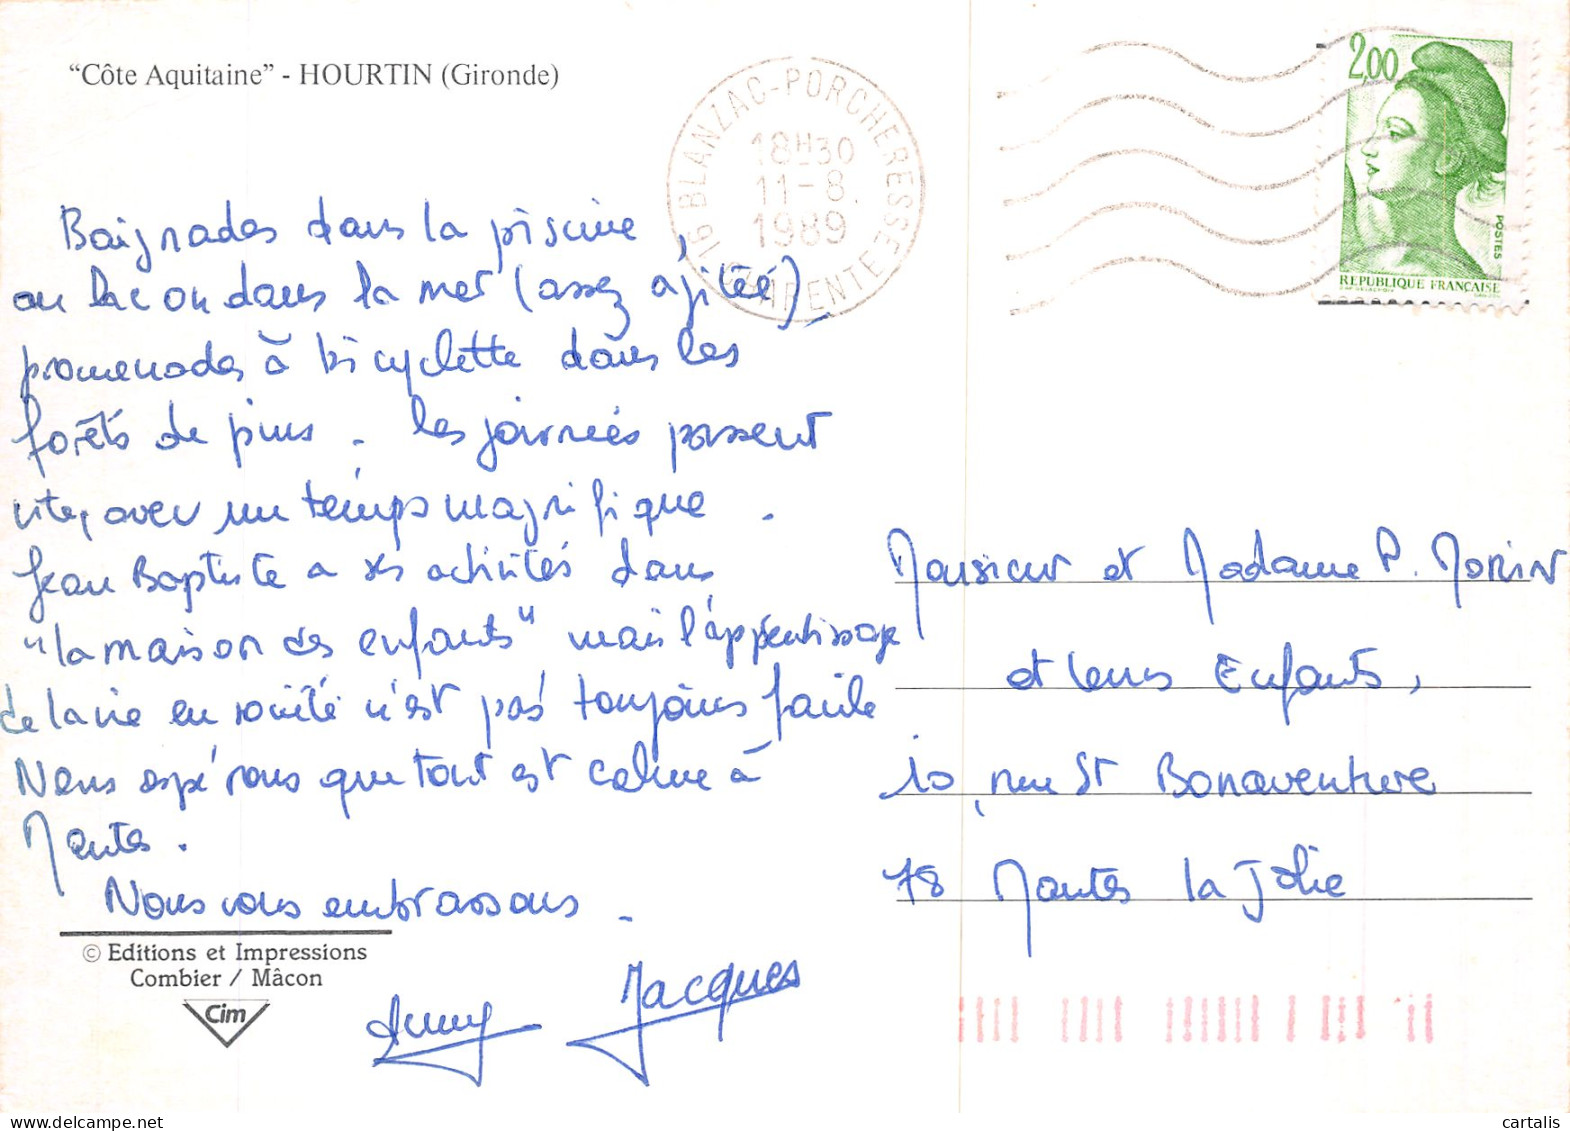 "Côte Aquitaine" - HOURTIN (Gironde)
16 BLANZAC-PORCHERESSE
CHARENTE
18H30
11-8
1989
2,00
POSTES
REPUBLIQUE FRANÇAISE
Baignades dans la piscine,
au lac ou dans la mer (assez agitée)_
promenades à bicyclette dans les
forêts de pins. Les journées passent
vite, avec un temps magnifique.
Jean Baptiste a ses activités dans
"la maison des enfants" mais l'apprentissage
de la vie en société n'est pas toujours facile
Nous espérons que tout est calme à
Mantes.
Nous vous embrassons.
Anny Jacques
Monsieur et Madame P. Morin
et leurs Enfants,
10, rue St Bonaventure
78 Mantes la Jolie
© Editions et Impressions
Combier / Mâcon
Cim
delcampe.net
cartalis